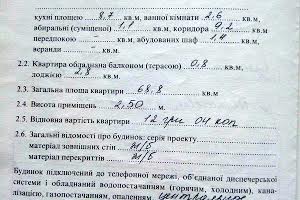 кухні площею 8,7 кв.м, ванної кімнати 2,6 кв.м
вбиральні (суміщеної) 1,1 кв.м, коридора 9,2 кв.м
передпокою кв.м, вбудованих шаф 1,4 кв.м
веранди – кв.м.
2.2. Квартира обладнана балконом (терасою) 0,8 кв.м,
лоджією 2,8 кв.м.
2.3. Загальна площа квартири 68,8 кв.м.
2.4. Висота приміщень 2,50 м.
2.5. Відновна вартість квартири 12 грн 04 коп
2.6. Загальні відомості про будинок: серія проекту
матеріал зовнішніх стін
матеріал перекриттів
Будинок підключено до телефонної мережі, об'єднаної диспетчерської
системи і обладнаний водопостачанням (горячим, холодним), кана-
лізацією, газопостачанням, опаленням